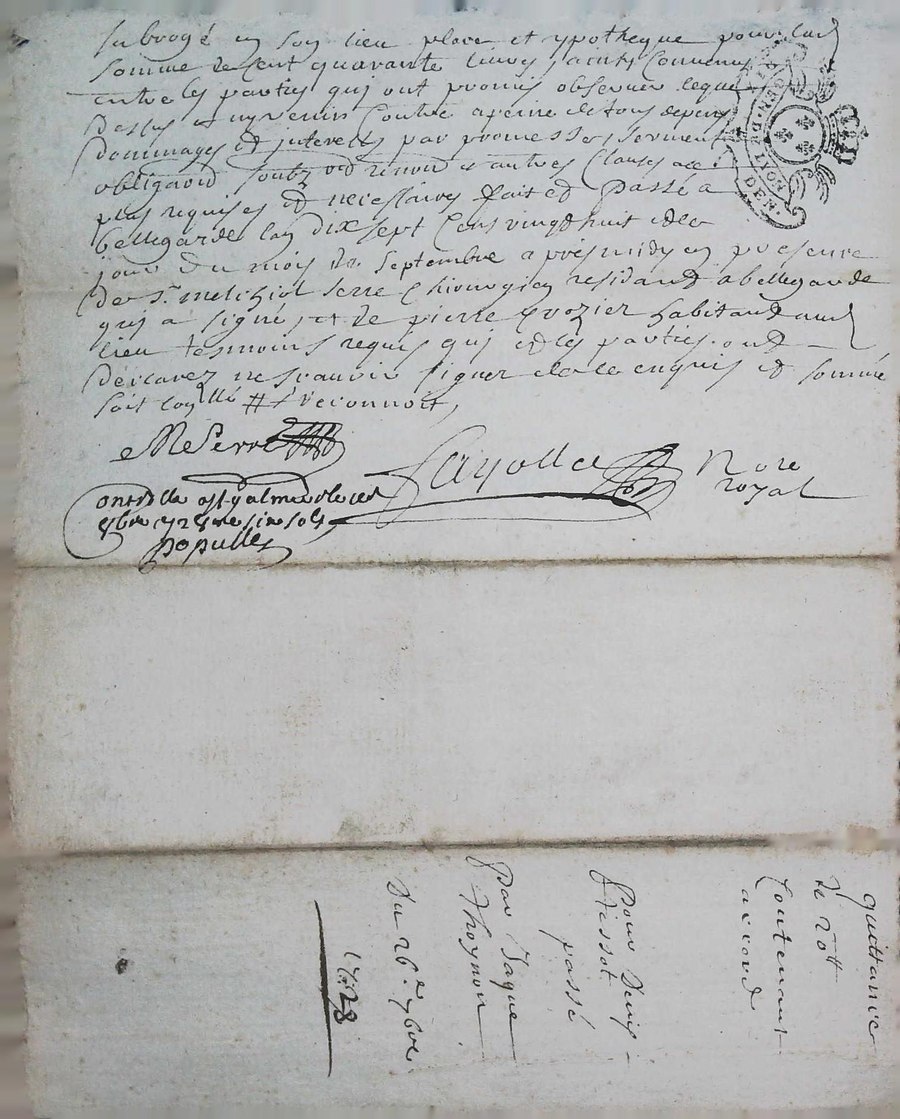 subrogé en son lieu place et ypotheque pour lad
somme de cent quarante livres, ainsy convenu
entre les parties qui ont promis observer le que
dessus et ny venir contre a peine de tous depens
dommages et interets par promesse serment
obligaōns soubz ōns renonōns et autres clauses a ce
plus requises et necessaires fait et passé a
bellegarde lan dix sept cens vingt huit et le
jour du mois de septembre apres midy en presence
de Sr. melchiol serre chirurgien residant a bellegarde
qui a signé, et de pierre crozier habitant aud
lieu tesmoins requis qui et les parties ont
declarez ne scavoir signer de ce enquis et sommé
soit
e M Serre
Nore
royal
onrolle a st galmier le
9bre 1728 six sols
populle
GEN. D. LION
DEN.
quittance
de 20tt
contenant
accord
pour denis
tissot
passé
par Jaque
thoynon
du 26e 7bre
1728